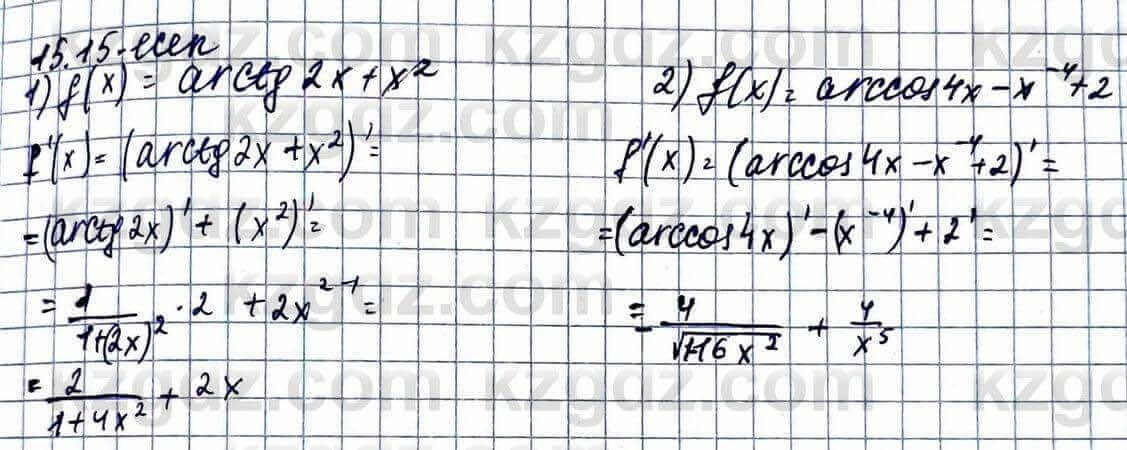 15.15-есеп
1) f(x) = arctg 2x + x²
f'(x) = (arctg 2x + x²)' =
= (arctg 2x)' + (x²)' =
= 1/(1+(2x)²) · 2 + 2x²⁻¹ =
= 2/(1+4x²) + 2x
2) f(x) = arccos 4x – x⁻⁴ + 2
f'(x) = (arccos 4x – x⁻⁴ + 2)' =
= (arccos 4x)' – (x⁻⁴)' + 2' =
= – 4/√(1-16x²) + 4/x⁵
kzgdz.com